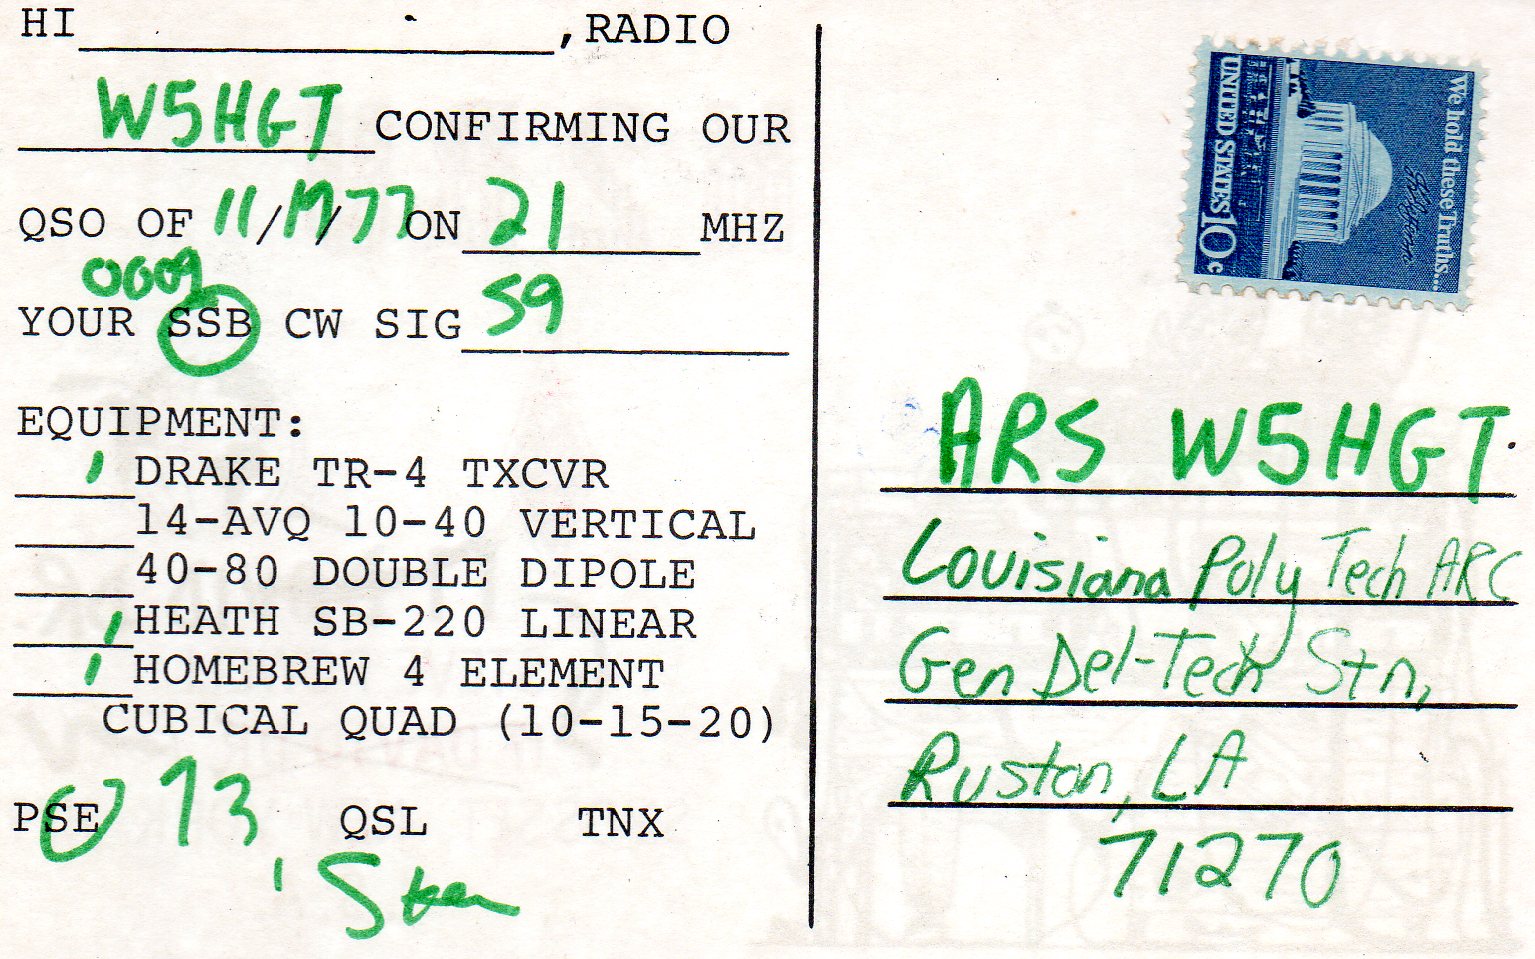 HI ,RADIO
W5HGT CONFIRMING OUR
QSO OF 11/19/77 ON 21 MHZ
YOUR SSB CW SIG 59
EQUIPMENT:
DRAKE TR-4 TXCVR
14-AVQ 10-40 VERTICAL
40-80 DOUBLE DIPOLE
HEATH SB-220 LINEAR
HOMEBREW 4 ELEMENT
CUBICAL QUAD (10-15-20)
PSE 73 QSL TNX
We hold these Truths...
UNITED STATES 10c
ARS W5HGT
Louisiana Poly Tech ARC
Gen Del-Tech Stn,
Ruston, LA
71270